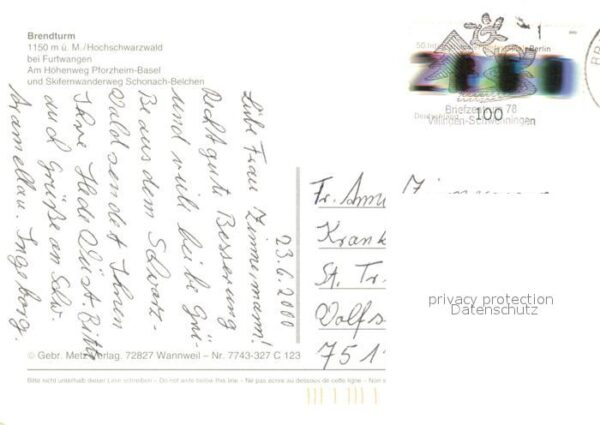 Brendturm
1150 m ü. M./Hochschwarzwald
bei Furtwangen
Am Höhenweg Pforzheim-Basel
und Skifernwanderweg Schonach-Belchen
23.6.2000
Liebe Frau Zimmermann!
Recht gute Besserung
und viele liebe Grü-
ße aus dem Schwarz-
wald sendet Ihnen
Ihre Hede Wüst. Bitte
auch Grüße an Schw.
Aramellau. Ingeborg.
© Gebr. Metz Verlag, 72827 Wannweil – Nr. 7743-327 C 123
Bitte nicht unterhalb dieser Linie schreiben – Do not write below this line – Ne pas écrire au dessous de cette ligne – Non
Berlin
Briefzentrum 78
Villingen-Schwenningen
Deutschland
100
Fr. Anne Zimmermann
Krank
St. Tr.
Wolfs
751
privacy protection
Datenschutz